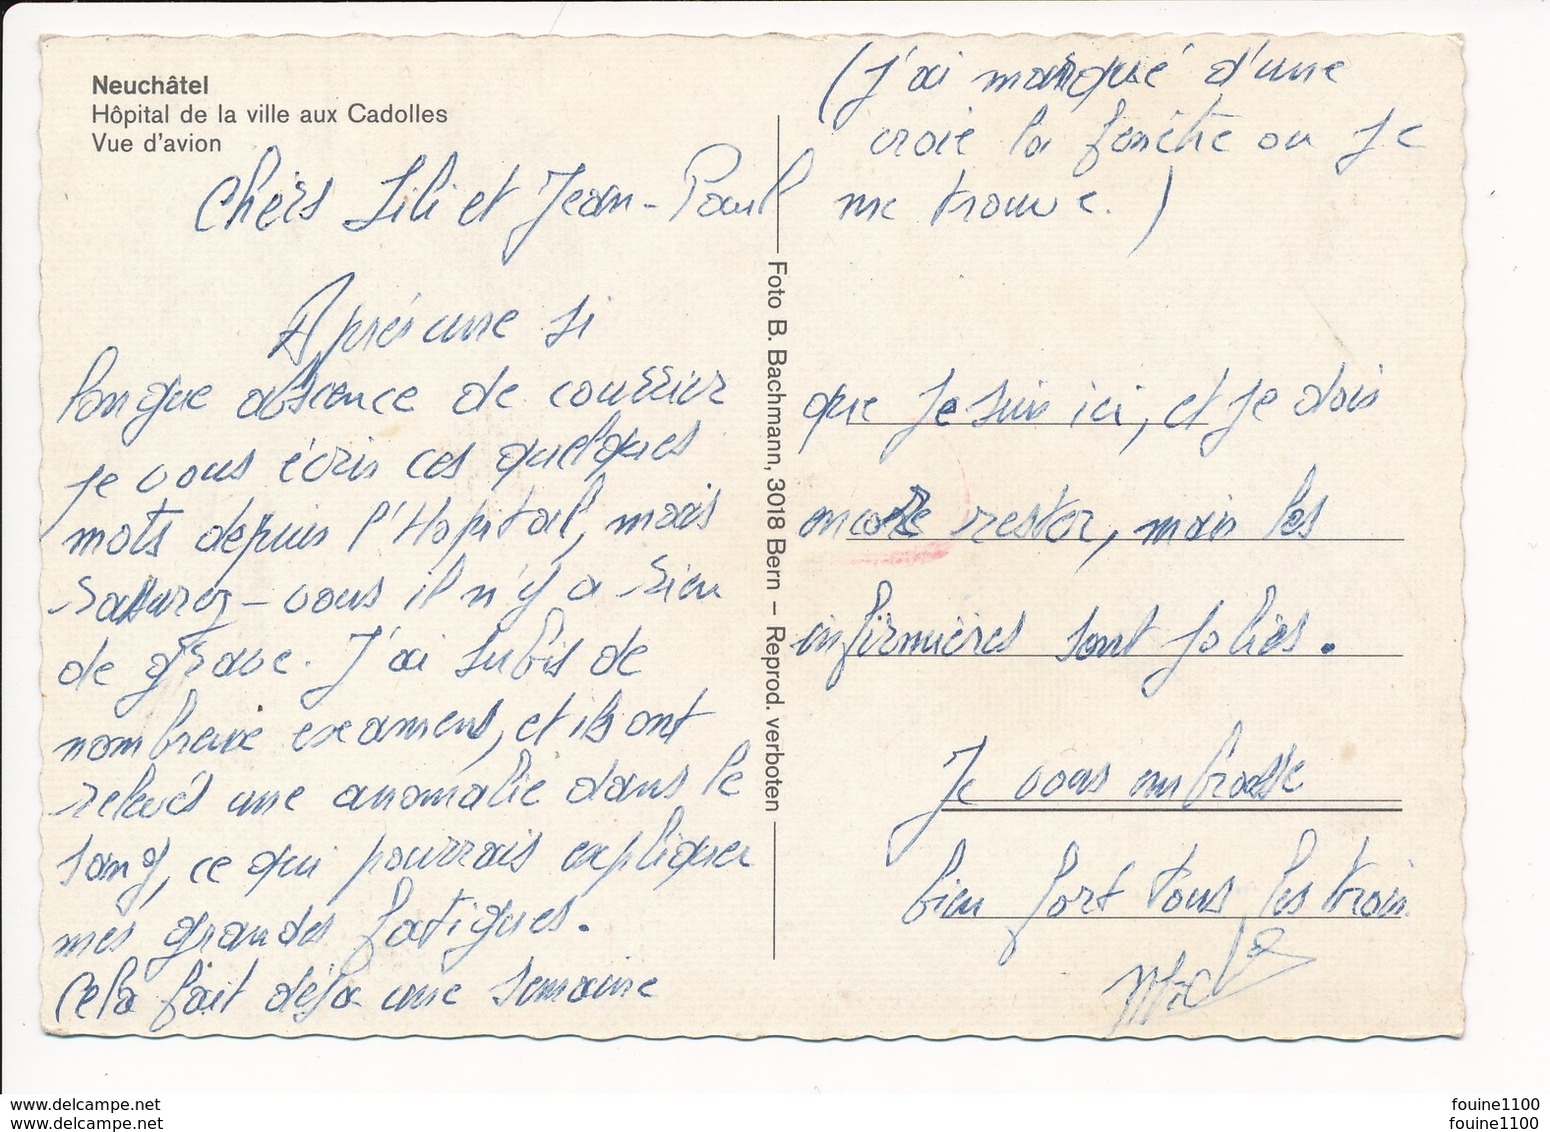 Neuchâtel
Hôpital de la ville aux Cadolles
Vue d'avion
(J'ai marqué d'une
croie la fenêtre ou je
me trouve.)
Chers Lili et Jean-Paul
Après une si
longue absence de courrier
je vous écris ces quelques
mots depuis l'Hopital, mais
rassurez-vous il n'y a rien
de grave. J'ai subis de
nombreux examens, et ils ont
relevés une anomalie dans le
sang, ce qui pourrais expliquer
mes grandes fatigues.
Cela fait déja une semaine
Foto B. Bachmann, 3018 Bern – Reprod. verboten
que je suis ici, et je dois
encore rester, mais les
infirmières sont jolies.
Je vous embrasse
bien fort tous les trois
www.delcampe.net
www.delcampe.net
fouine1100
fouine1100